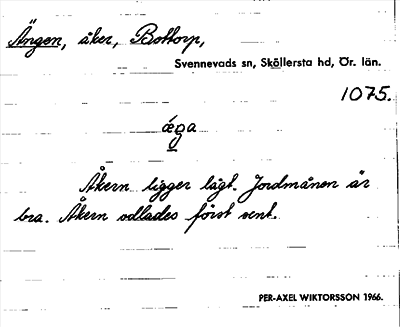 Ängen, åker, Bottorp,
Svennevads sn, Sköllersta hd, Ör. län.
1075.
Åkern ligger lågt. Jordmånen är
bra. Åkern odlades först vent.
PER-AXEL WIKTORSSON 1966.